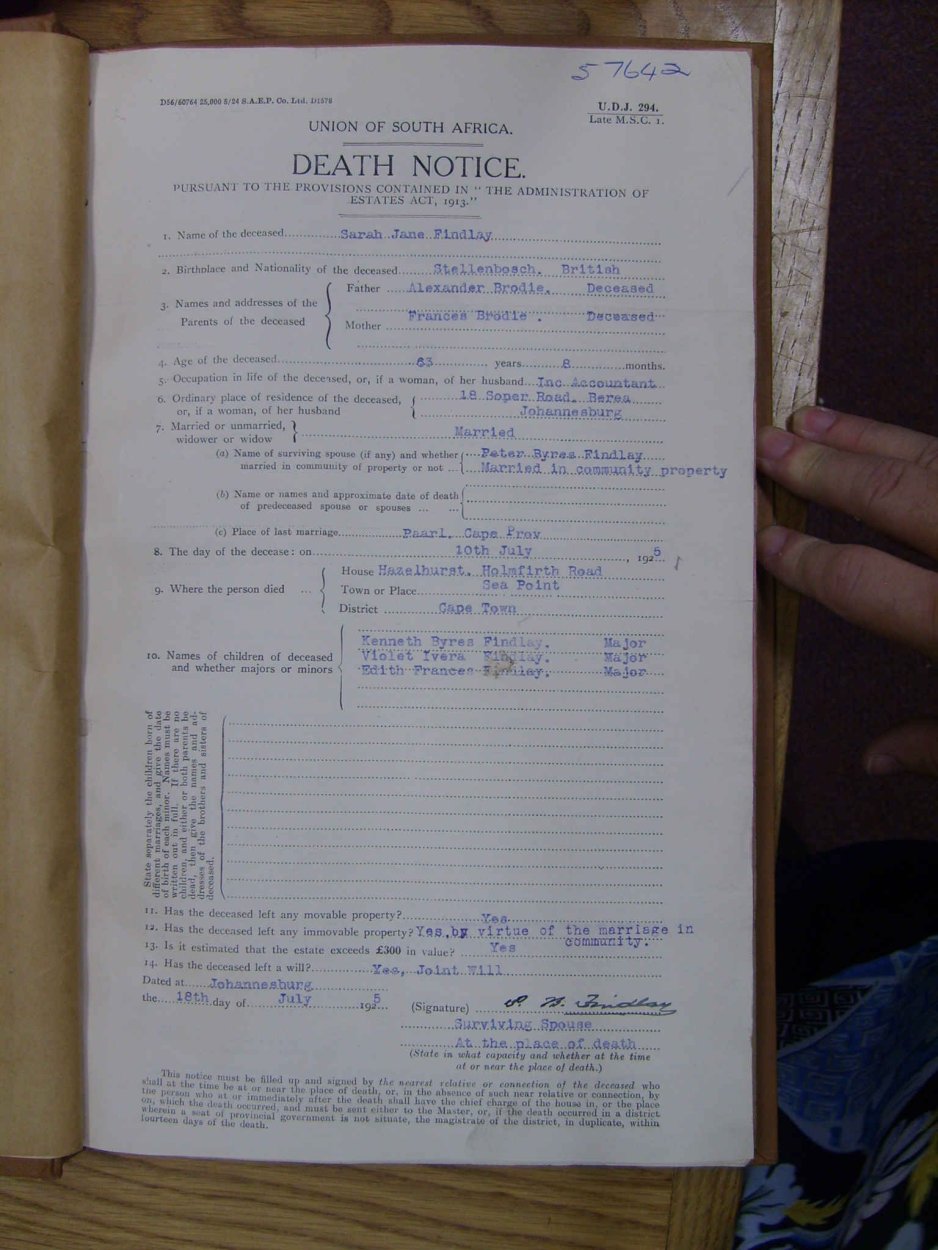 57642
D56/60764 25,000 5/24 S.A.E.P. Co. Ltd. D1578
U.D.J. 294.
Late M.S.C. 1.
UNION OF SOUTH AFRICA.
DEATH NOTICE.
PURSUANT TO THE PROVISIONS CONTAINED IN "THE ADMINISTRATION OF
ESTATES ACT, 1913."
1. Name of the deceased Sarah Jane Findlay
2. Birthplace and Nationality of the deceased Stellenbosch. British
3. Names and addresses of the Parents of the deceased
Father Alexander Brodie. Deceased
Mother Frances Brodie. Deceased
4. Age of the deceased 63 years 8 months.
5. Occupation in life of the deceased, or, if a woman, of her husband Inc Accountant
6. Ordinary place of residence of the deceased, 18 Soper Road. Berea
or, if a woman, of her husband Johannesburg
7. Married or unmarried,
widower or widow Married
(a) Name of surviving spouse (if any) and whether Peter Byres Findlay
married in community of property or not ... Married in community property
(b) Name or names and approximate date of death
of predeceased spouse or spouses ... ...
(c) Place of last marriage Paarl. Cape Prov
8. The day of the decease: on 10th July, 1925
9. Where the person died ...
House Hazelhurst. Holmfirth Road
Town or Place Sea Point
District Cape Town
10. Names of children of deceased
and whether majors or minors
Kenneth Byres Findlay. Major
Violet Ivera Findlay. Major
Edith Frances Findlay. Major
State separately the children born of
different marriages, and give the date
of birth of each minor. Names must be
written out in full. If there are no
children, and either or both parents be
dead, then give the names and ad-
dresses of the brothers and sisters of
deceased.
11. Has the deceased left any movable property? Yes
12. Has the deceased left any immovable property? Yes, by virtue of the marriage in
community.
13. Is it estimated that the estate exceeds £300 in value? Yes
14. Has the deceased left a will? Yes, Joint Will
Dated at Johannesburg
the 18th day of July 1925
(Signature) P. B. Findlay
Surviving Spouse
At the place of death
(State in what capacity and whether at the time
at or near the place of death.)
This notice must be filled up and signed by the nearest relative or connection of the deceased who
shall at the time be at or near the place of death, or, in the absence of such near relative or connection, by
the person who at or immediately after the death shall have the chief charge of the house in, or the place
on, which the death occurred, and must be sent either to the Master, or, if the death occurred in a district
wherein a seat of provincial government is not situate, the magistrate of the district, in duplicate, within
fourteen days of the death.